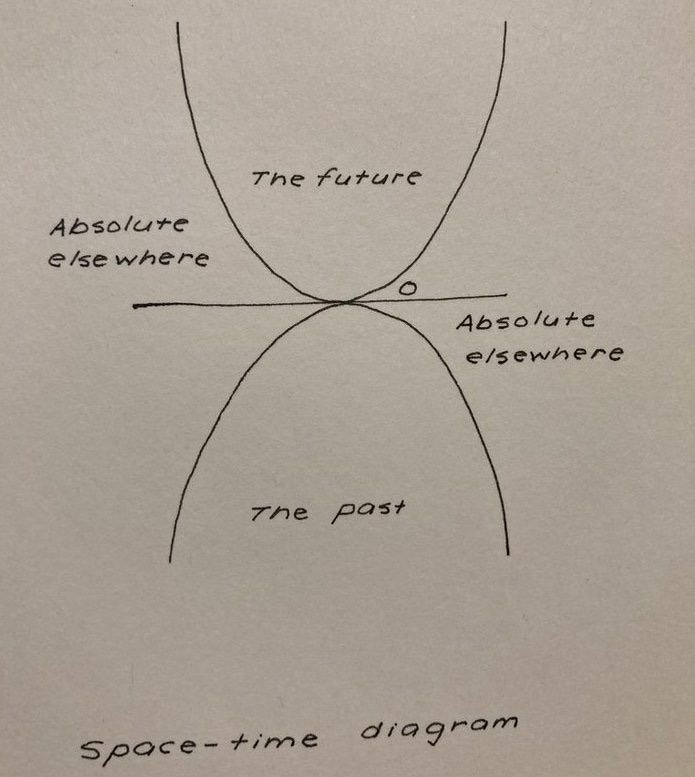 The future
Absolute
elsewhere
O
Absolute
elsewhere
The past
Space-time diagram